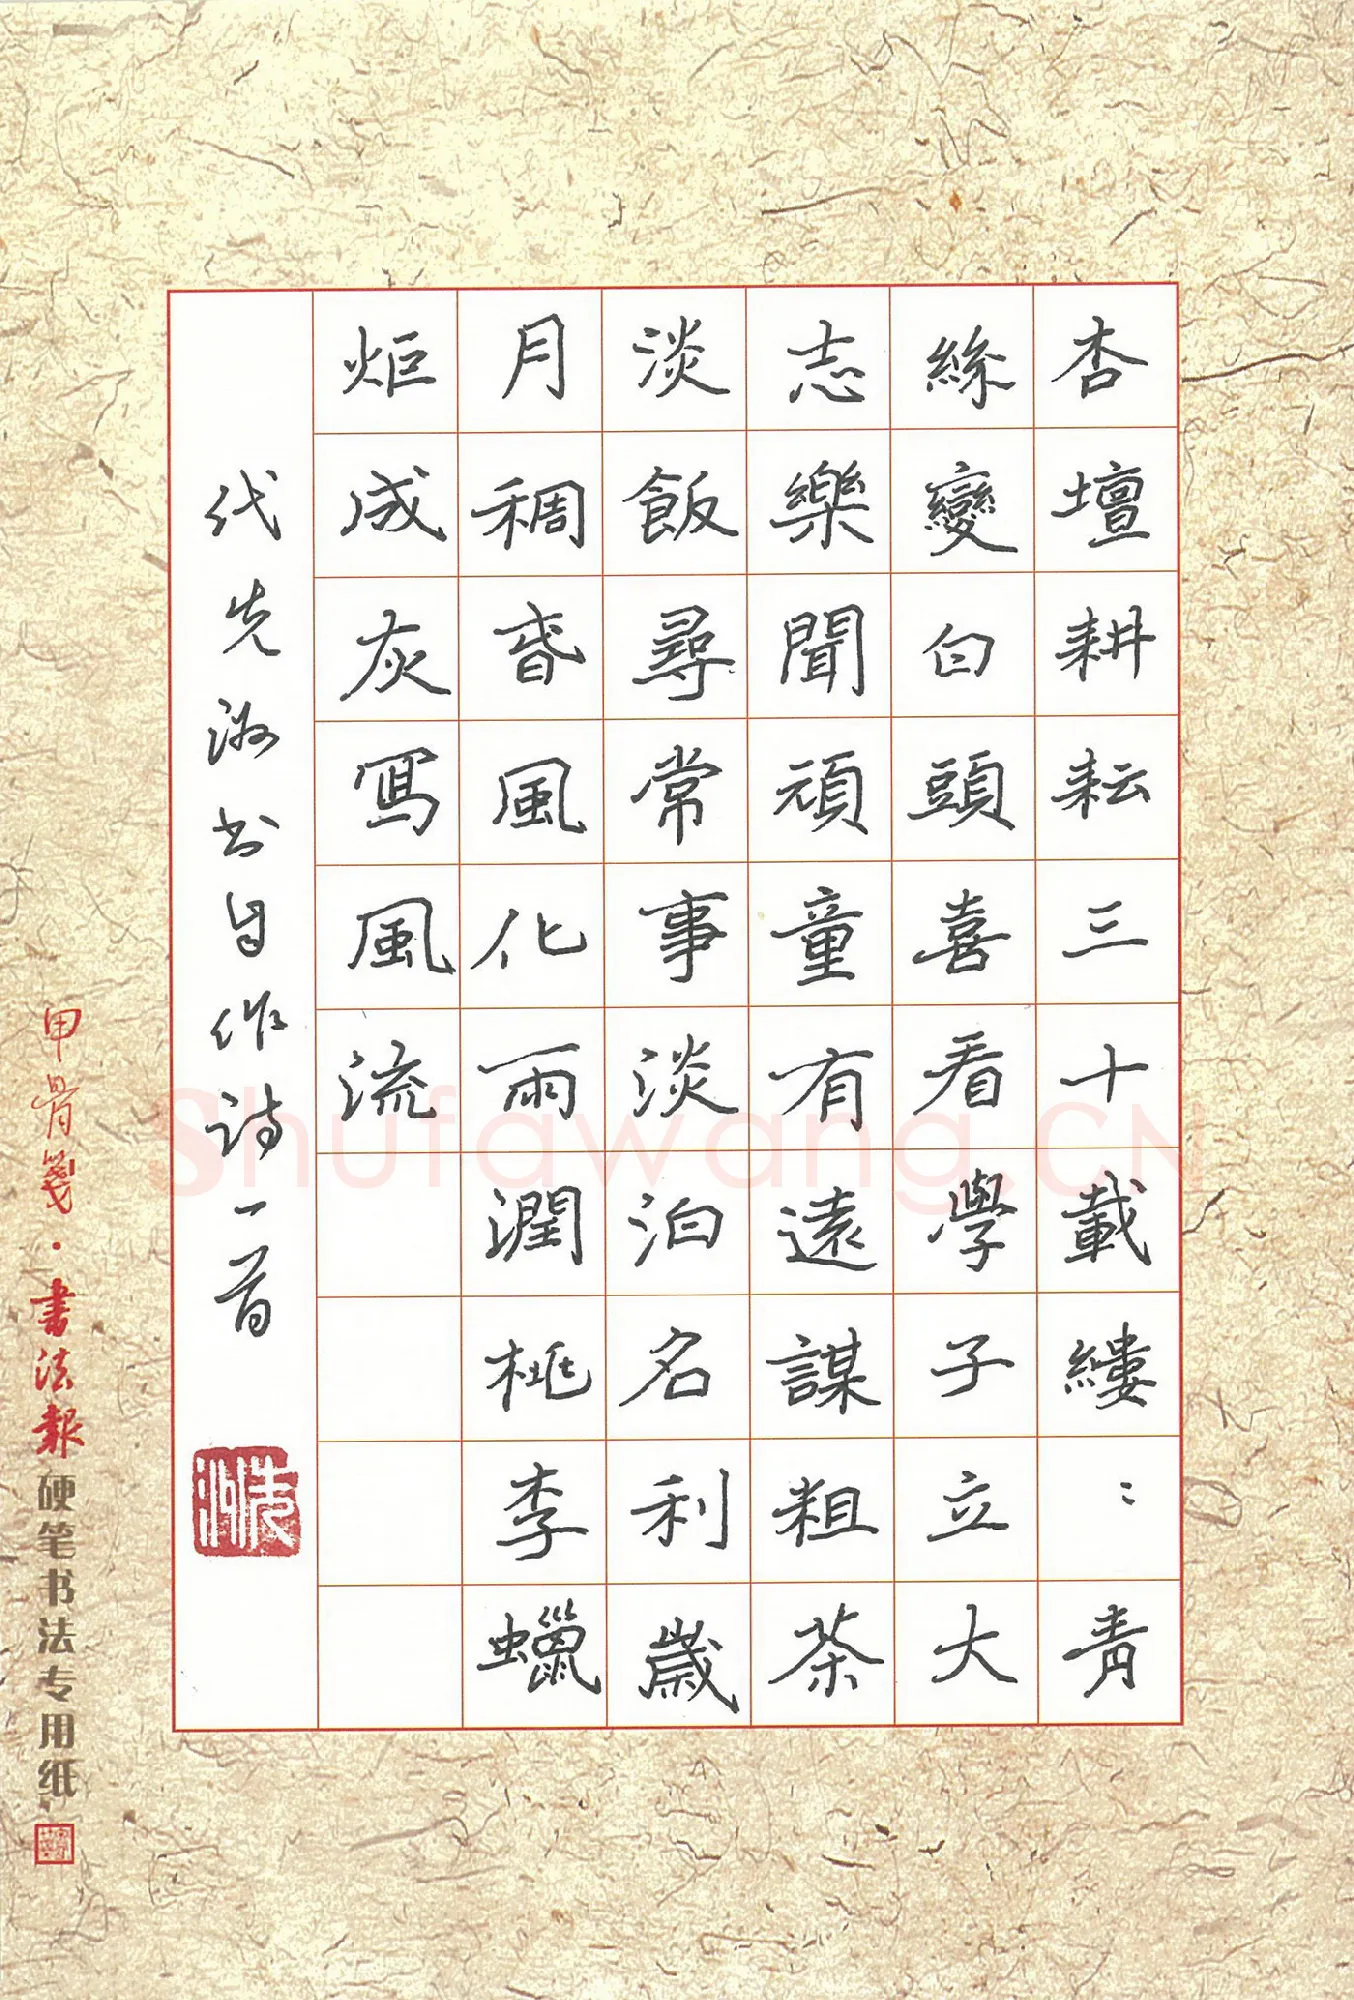 杏壇耕耘三十載縷〻青
絲變白頭喜看學子立大
志樂聞頑童有遠謀粗茶
淡飯尋常事淡泊名利歲
月稠昏風化雨潤桃李蠟
炬成灰寫風流
代先洲书自作诗一首
甲骨箋·書法報硬笔书法专用纸
Shufawang.CN